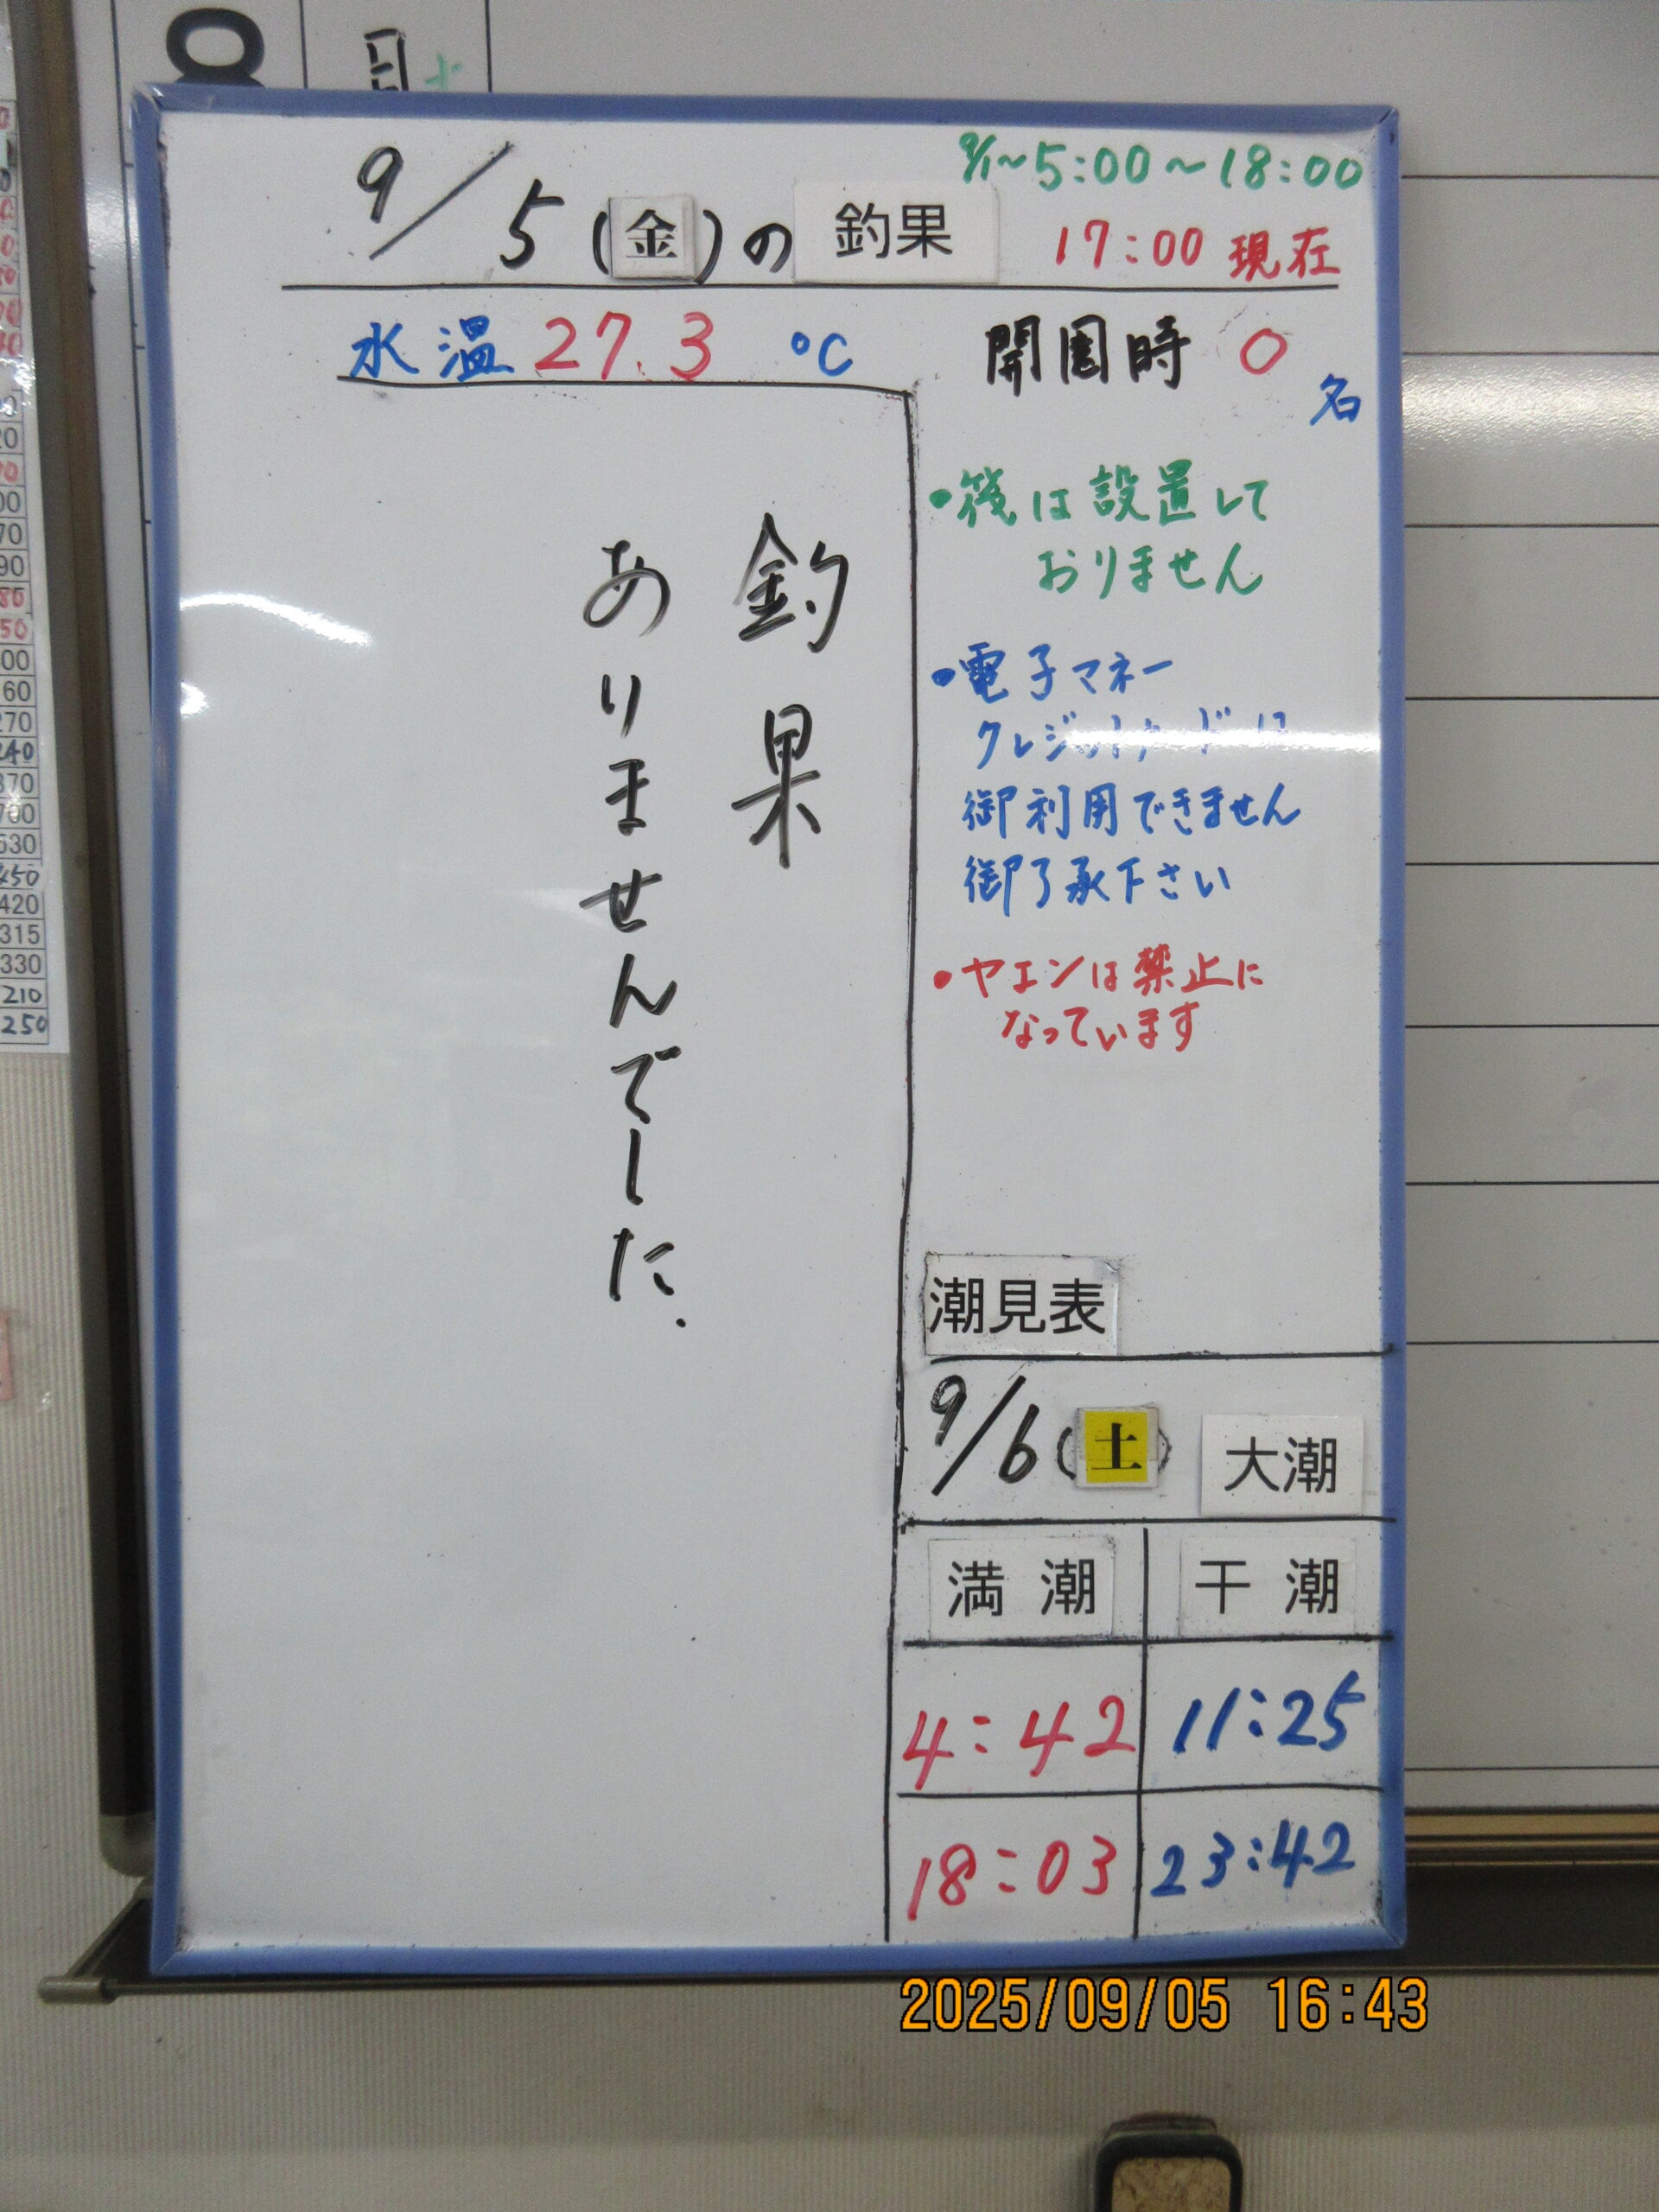 9/1~5:00~18:00
9/5(金)の 釣果
17:00 現在
水温 27.3 ℃
開園時 0名
釣果
ありませんでした.
・筏は設置して
おりません
・電子マネー
クレジットカードは
御利用できません
御了承下さい
・ヤエンは禁止に
なっています
潮見表
9/6(土) 大潮
満潮 干潮
4:42 11:25
18:03 23:42
2025/09/05 16:43
8
月
80
50
00
60
270
240
370
700
530
450
420
315
330
210
250